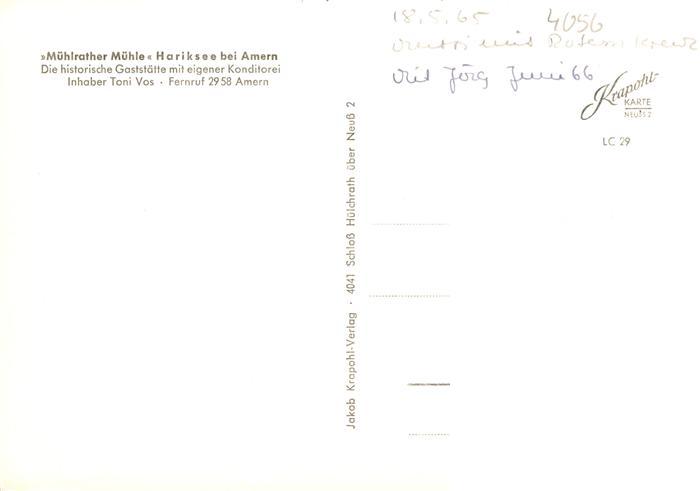 »Mühlrather Mühle« Hariksee bei Amern
Die historische Gaststätte mit eigener Konditorei
Inhaber Toni Vos · Fernruf 29 58 Amern
Jakob Krapohl-Verlag · 4041 Schloß Hülchrath über Neuß 2
18.5.65 4056
mit Rotem Kreuz
mit Jörg Juni 66
Krapohl-
KARTE
NEUSS 2
LC 29